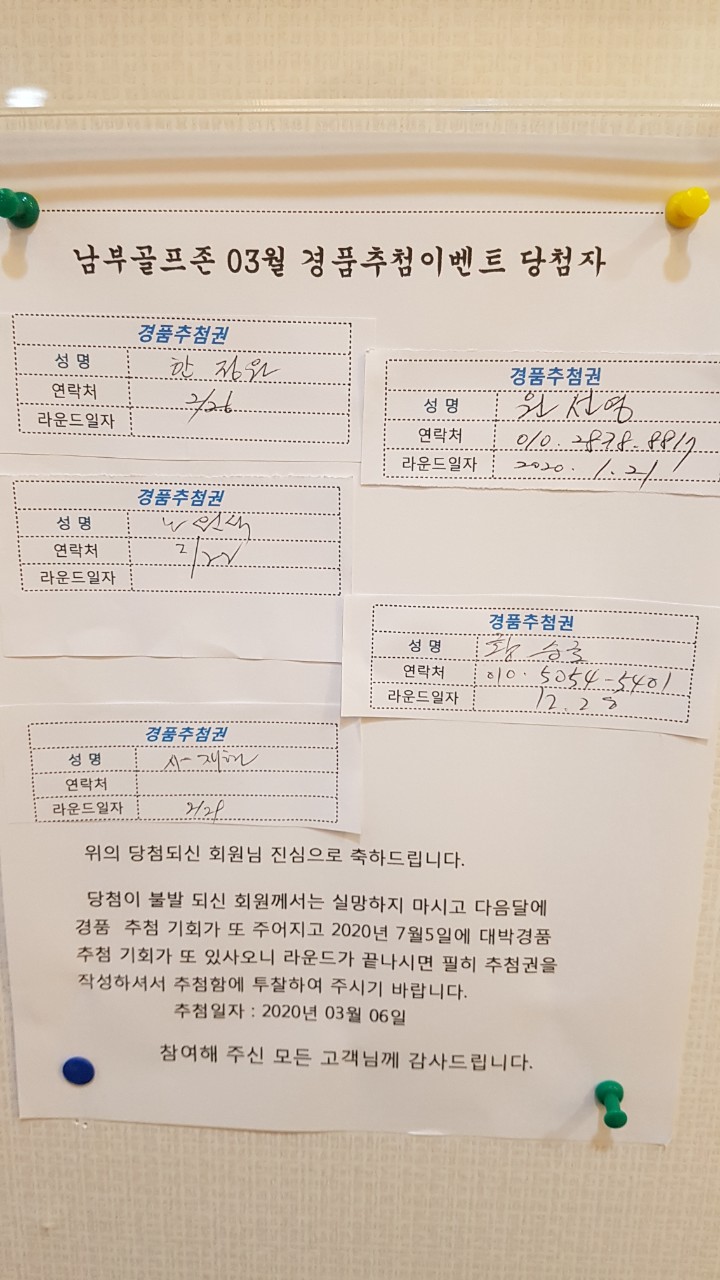 남부골프존 03월 경품추첨이벤트 당첨자
경품추첨권
성 명 한 정원
연락처 2/26
라운드일자
경품추첨권
성 명 원 선영
연락처 010. 2878-8817
라운드일자 2020. 1. 21
경품추첨권
성 명
연락처 2/22
라운드일자
경품추첨권
성 명 황
연락처 010. 5054-5401
라운드일자 12. 28
경품추첨권
성 명
연락처
라운드일자 2/29
위의 당첨되신 회원님 진심으로 축하드립니다.
당첨이 불발 되신 회원께서는 실망하지 마시고 다음달에
경품 추첨 기회가 또 주어지고 2020년 7월5일에 대박경품
추첨 기회가 또 있사오니 라운드가 끝나시면 필히 추첨권을
작성하셔서 추첨함에 투찰하여 주시기 바랍니다.
추첨일자 : 2020년 03월 06일
참여해 주신 모든 고객님께 감사드립니다.